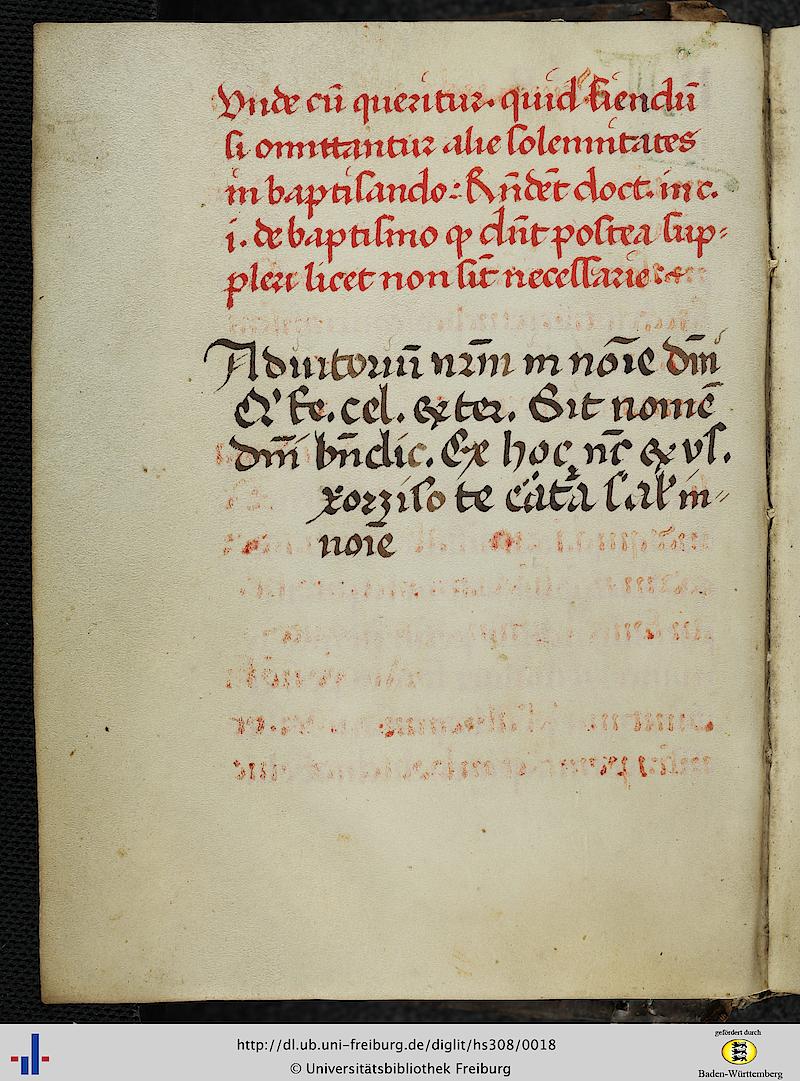 Vnde cū queritur. quid fiendū
si omittantur alie solennitates
in baptisando: Rn̄dēt doct. in c.
i. de baptismo ꝙ dn̄t postea sup-
pleri licet non sīt necessarie
Adiutoriū nr̄m in noīe dn̄i
Q' fe. cel. & ter. Sit nomē
dn̄i bn̄dic. Ex hoc nc̄ & vſ.
xorziso te c̄āt̄a sal in-
noīe
http://dl.ub.uni-freiburg.de/diglit/hs308/0018
© Universitätsbibliothek Freiburg
gefördert durch
Baden-Württemberg